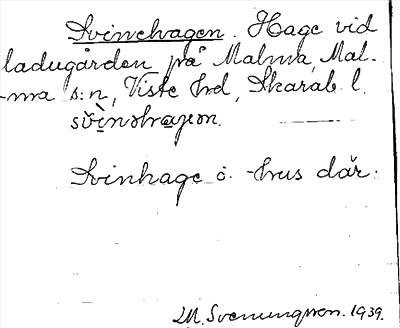 Svinehagen. Hage vid
ladugården på Malma, Mal-
ma s:n, Viste hrd, Skarab. l.
Svinhage o. -hus där.
M. Svenungsson. 1939.